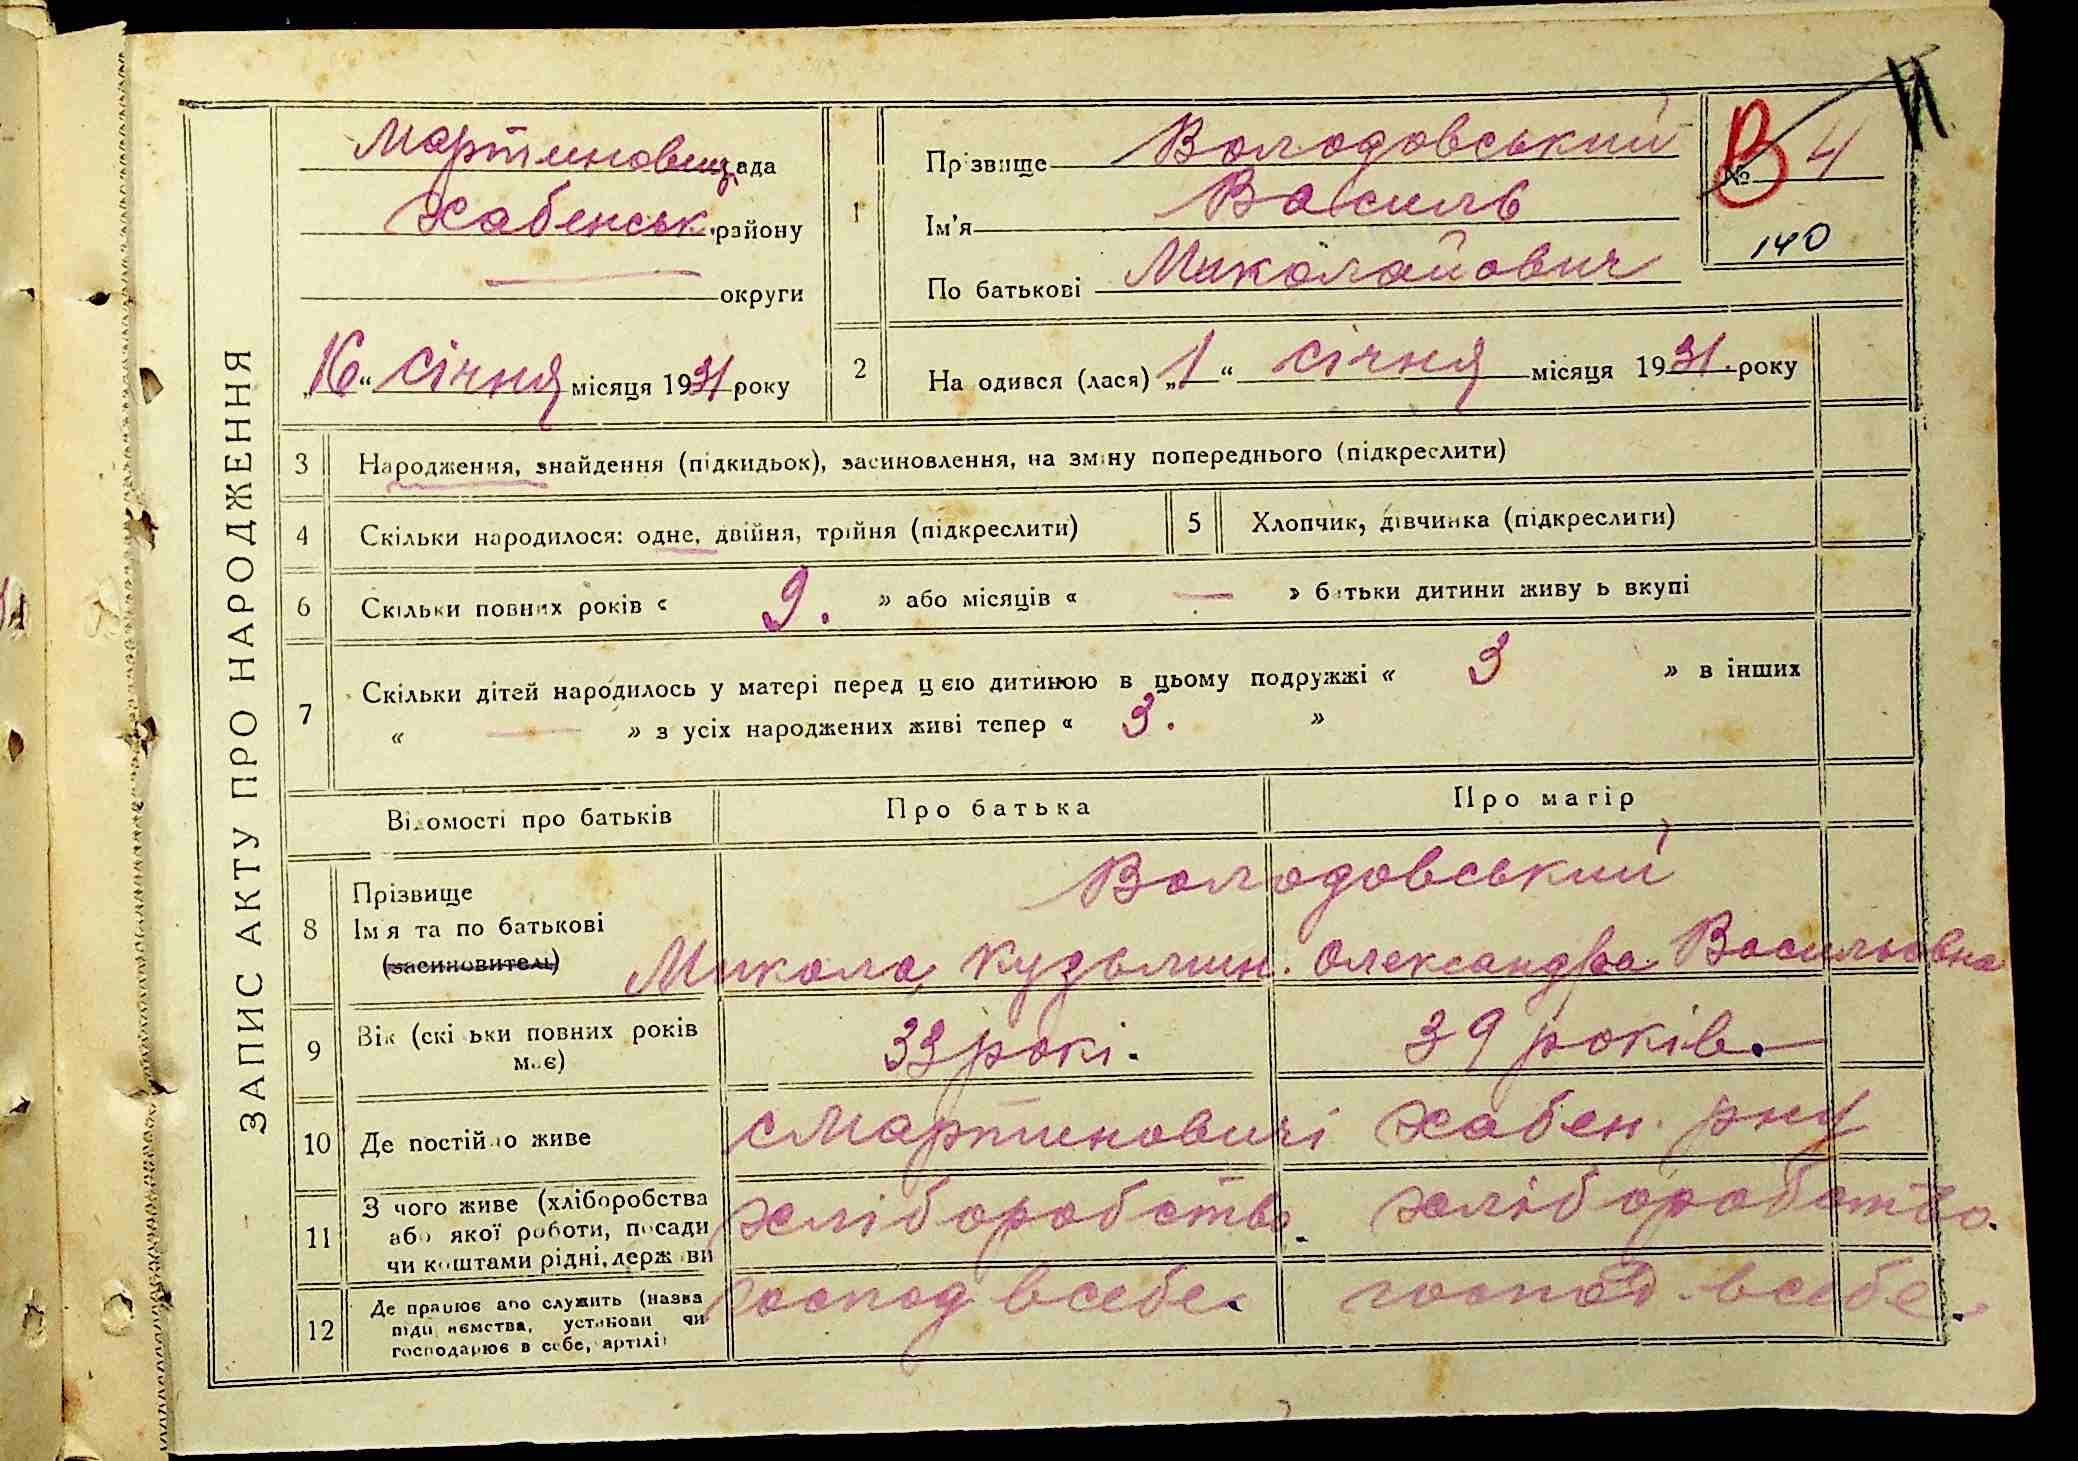 ЗАПИС АКТУ ПРО НАРОДЖЕННЯ
Мартиновиц. ада
Хабенськ. району
— округи
„16“ січня місяця 1931 року
1
Прізвище Володовський
Ім'я Василь
По батькові Миколайович
В
№ 4
140
2
На одився (лася) „1“ січня місяця 1931. року
3 Народження, знайдення (підкидьок), засиновлення, на зміну попереднього (підкреслити)
4 Скільки народилося: одне, двійня, трійня (підкреслити)
5 Хлопчик, дівчинка (підкреслити)
6 Скільки повних років « 9. » або місяців « — » батьки дитини живу ь вкупі
7 Скільки дітей народилось у матері перед цією дитиною в цьому подружжі « 3 » в інших
« — » з усіх народжених живі тепер « 3. »
Відомості про батьків Про батька Про матір
8 Прізвище
Ім я та по батькові
(засиновителі)
Володовський
Микола Кузьмин. Олександра Васильовна
9 Вік (скі ьки повних років
має)
33 рокі. 39 років.
10 Де постійно живе
с Мартиновичі Хабен. рну
11 З чого живе (хліборобства
або якої роботи, посади
чи коштами рідні, держави
хліборобство. хліборобство.
12 Де працює або служить (назва
підприємства, установи чи
господарює в себе, артілі)
господ в себе. господ. в себе.